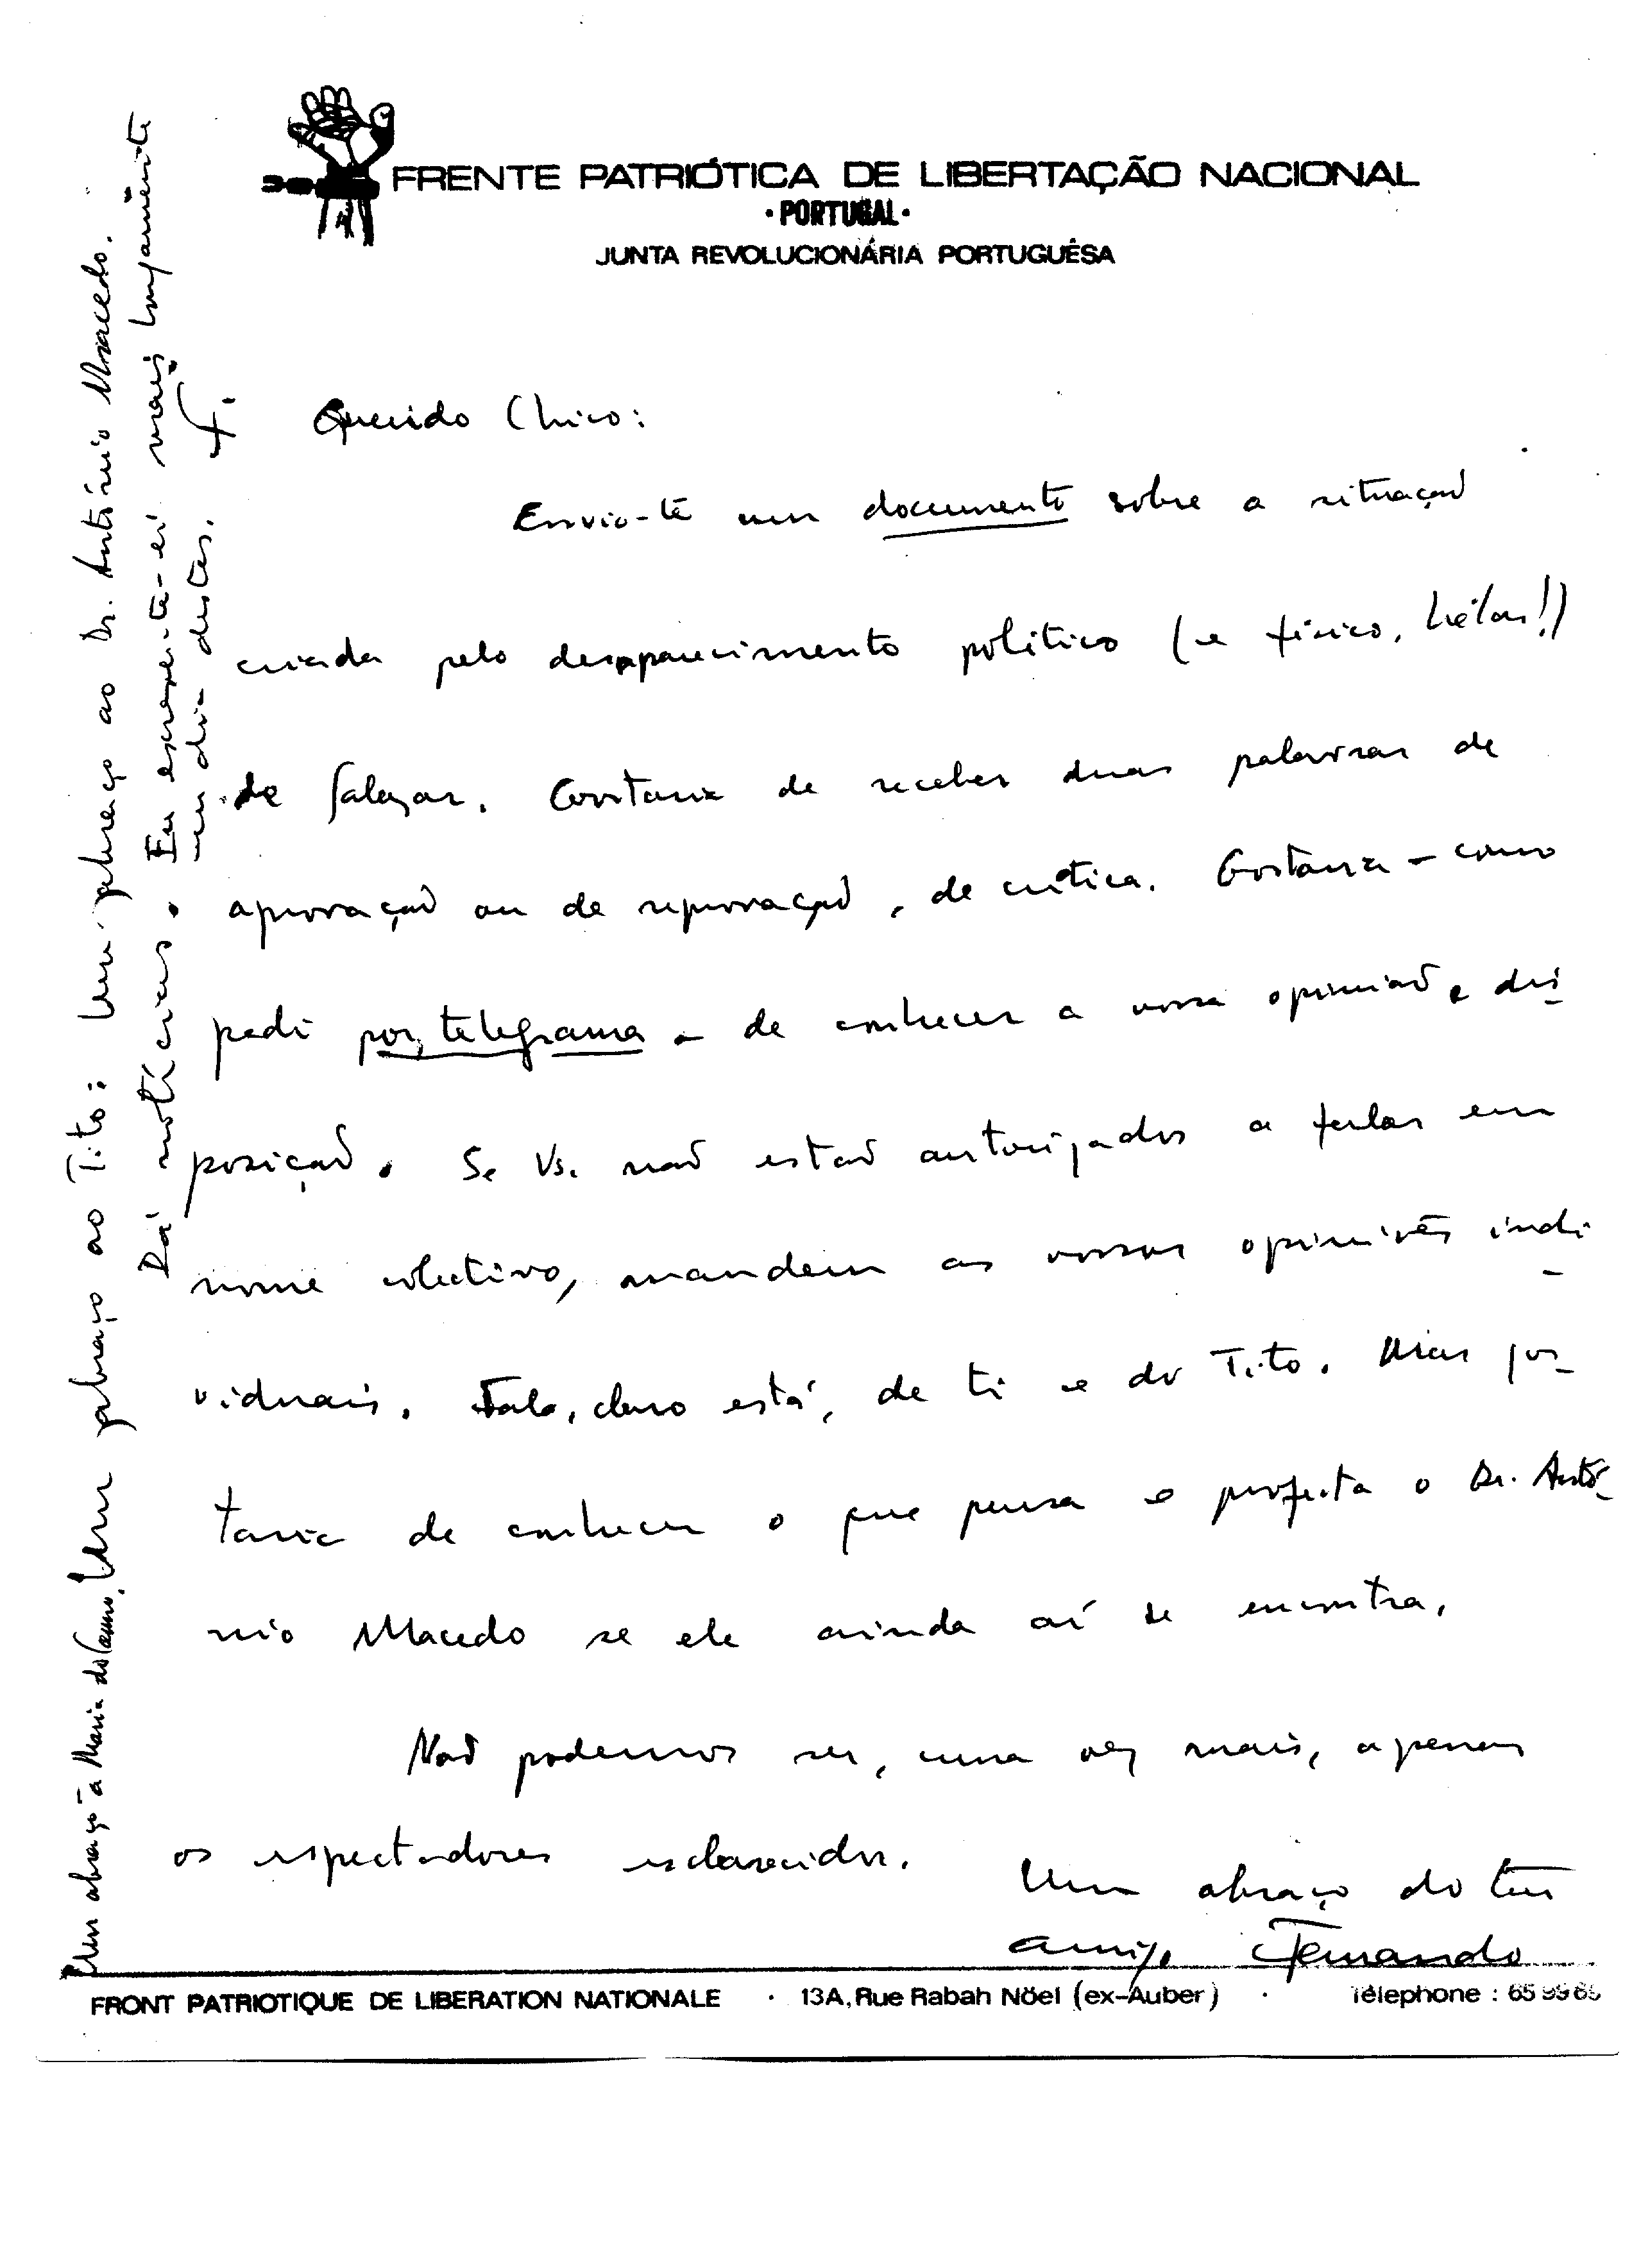 FRENTE PATRIÓTICA DE LIBERTAÇÃO NACIONAL
· PORTUGAL ·
JUNTA REVOLUCIONÁRIA PORTUGUÊSA
Querido Chico:
Envio-te um documento sobre a situação
criada pelo desaparecimento político (e físico, hélas!)
de Salazar. Gostaria de receber duas palavras de
aprovação ou de reprovação, de crítica. Gostaria – como
pedi por telegrama – de conhecer a vossa opinião e dis-
posição. Se Vs. não estão autorizados a falar em
nome colectivo, mandem as vossas opiniões indi-
viduais. Falo, claro está, de ti e do Tito. Mas gos-
taria de conhecer o que pensa e projecta o Dr. Antó-
nio Macedo se ele ainda aí se encontra.
Não podemos ser, uma vez mais, apenas
os espectadores esclarecidos.
Um abraço do teu
amigo Fernando
Um abraço à Maria do Carmo. Um abraço ao Tito: Um abraço ao Dr. António Macedo.
Dá notícias. Eu escrever-te-ei mais longamente
um dia destes.
F.
FRONT PATRIOTIQUE DE LIBERATION NATIONALE · 13A, Rue Rabah Nöel (ex-Auber) · Télephone : 65 99 65